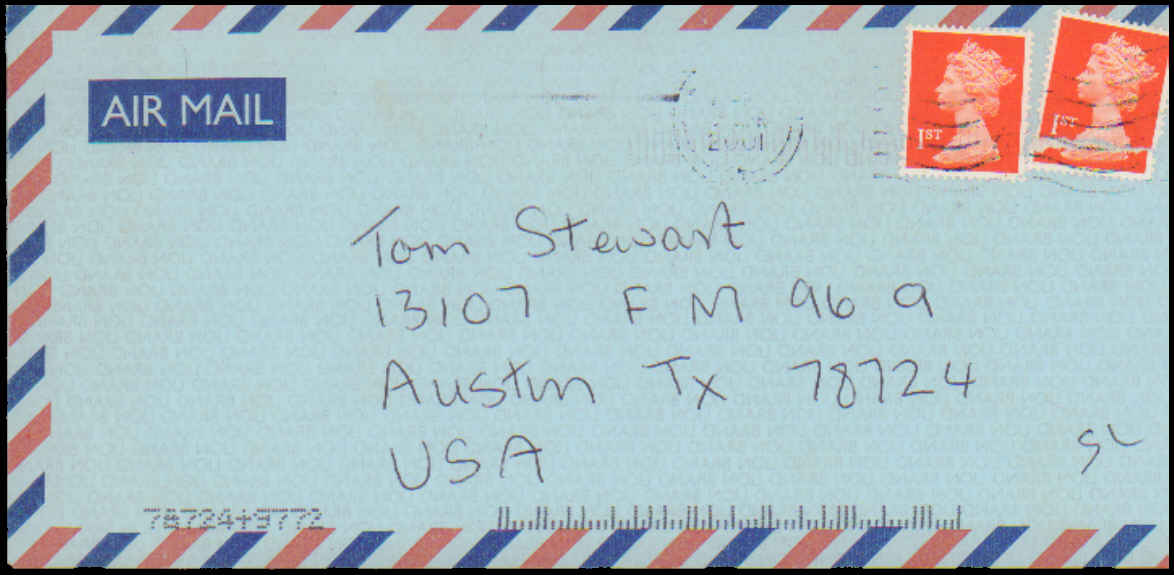 AIR MAIL
2001
1ST
1ST
Tom Stewart
13107 F M 96 9
Austin Tx 78724
USA
SL
78724+9772